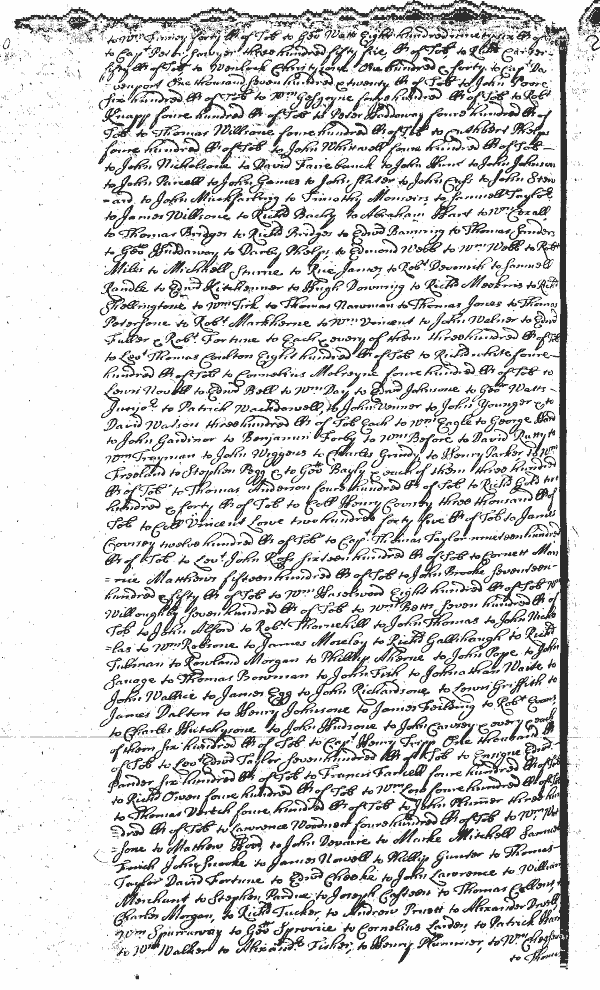 to Wm Finney forty lbs of Tob to Geo Watts Eight hundred ninety six lbs of
to Capt Peter Sawyer three hundred fifty five lbs of Tob to Richd Carter
fifty lbs of Tob to Wenlock Christyson One hundred & forty to Capt Da
venport One thousand seven hundred & twenty lbs of Tob to John Poore
Six hundred lbs of Tob to Wm Gascoyne foure hundred lbs of Tob to Robt
Knapp foure hundred lbs of Tob to Peter Haddaway foure hundred lbs of
Tob to Thomas Willsone foure hundred lbs of Tob to Cuthbert Phelps
foure hundred lbs of Tob to John Whitwell foure hundred lbs of Tob
to John Nicholsone to David Fairebanck to John Hunt to John Johnson
to John Purcell to John Games to John Slater to John Cuss to John Stew
=ard to John Muckfarting to Timothy Memoirs to Samuell Taylor
to James Willsone to Richd Bachy to Abraham Hart to Wm Cozall
to Thomas Bridges to Richd Bridges to Edwd Banning to Thomas Sanders
to Geo Haddaway to Darby Phelps to Edmond Webb to Wm Webb to Robt
Miles to Michaell Sucrue to Rue James to Robt Devenish to Samuell
Randle to Edwd Kitchenner to Hugh Downing to Richd Meekins to Richd
Skellingtone to Wm Kirk to Thomas Newman to Thomas Jones to Thomas
Petersone to Robt Markhorne to Wm Vincent to John Walner to Edwd
Fuller & Robt Fortune to Each & every of them three hundred lbs of Tob
to Leo Thomas Coulton Eight hundred lbs of Tob to Richd White foure
hundred lbs of Tob to Cornelius Mulrayne foure hundred lbs of Tob to
Lewis Novell to Edwd Bell to Wm Day to Edwd Johnsone to Geo Watts
Junjor to Patrick Mackdowell, to John Venner to John Younger & to
David Watson three hundred lbs of Tob Each to Wm Eagle to George
to John Gardinor to Benjamin Forby to Wm Before to David
Wm Troyman to John Wiggens to Charles Grindy to Henry Parker to Wm
Freeland to Stephen Pegg & to Geo Bayly & each of them three hundred
lbs of Tob to Thomas Anderson foure hundred lbs of Tob to Richd Gold
hundred & forty lbs of Tob to Coll Henry Coursey three thousand lbs of
Tob to Coll Vincent Lowe two hundred forty five lbs of Tob to James
Coursey twelve hundred lbs of Tob to Capt Thomas Taylor nineteen hundred
lbs of Tob to Leo John Ross sixteen hundred lbs of Tob to Cornett Mau
=rice Matthews fifteen hundred lbs of Tob to John Brooke seventeen
hundred & fifty lbs of Tob to Wm Haselwood Eight hundred lbs of Tob Wm
Willoughby seven hundred lbs of Tob to Wm Betts Seven hundred lbs of
Tob to John Alford to Robt Thornehill to John Thomas to John Nicho
=las to Wm Robsone to James Moseley to Richd Gallihaugh to Richd
Tubman to Rowland Morgan to Phillip Aherne to John Pope to John
Savage to Thomas Bowman to John Kirk to Johnathan Waite to
John Wallice to James Egg to John Richardsone to Lewis Griffith to
James Dalton to Henry Johnsone to James Feilding to Robt Evans
to Charles Hutchysone to John Hudsone to John Causey & every each
of them six hundred lbs of Tob to Capt Henry Tripp One thousand lbs
of Tob to Leo Edwd Taylor seven hundred lbs of Tob to Ensigne Edwd
Pander Six hundred lbs of Tob to Francis Tarsell foure hundred lbs of Tob
to Richd Owen foure hundred lbs of Tob to Wm Low foure hundred lbs of Tob
to Thomas Vertch foure hundred lbs of Tob to John Plumer three hun
=dred lbs of Tob to Lawrence Woodnew foure hundred lbs of Tob to Wm
=sone to Mathew Hood to John Deware to Marke Mitchell Samuel
John Snooke to James Novell to Phillip Gunter to Thomas
Taylor David Fortune to Edwd Chooke to John Lawrence to William
Merchant to Stephen Pardue to Joseph Casteen to Thomas
Charles Morgan, to Richd Tucker, to Andrew Pruett to Alexander
Wm Spurraway to Geo Sprouse to Cornelius Larden, to Patrick
to Wm Walker to Alexandr Fisher, to Henry Plummer, to Wm
to Thomas